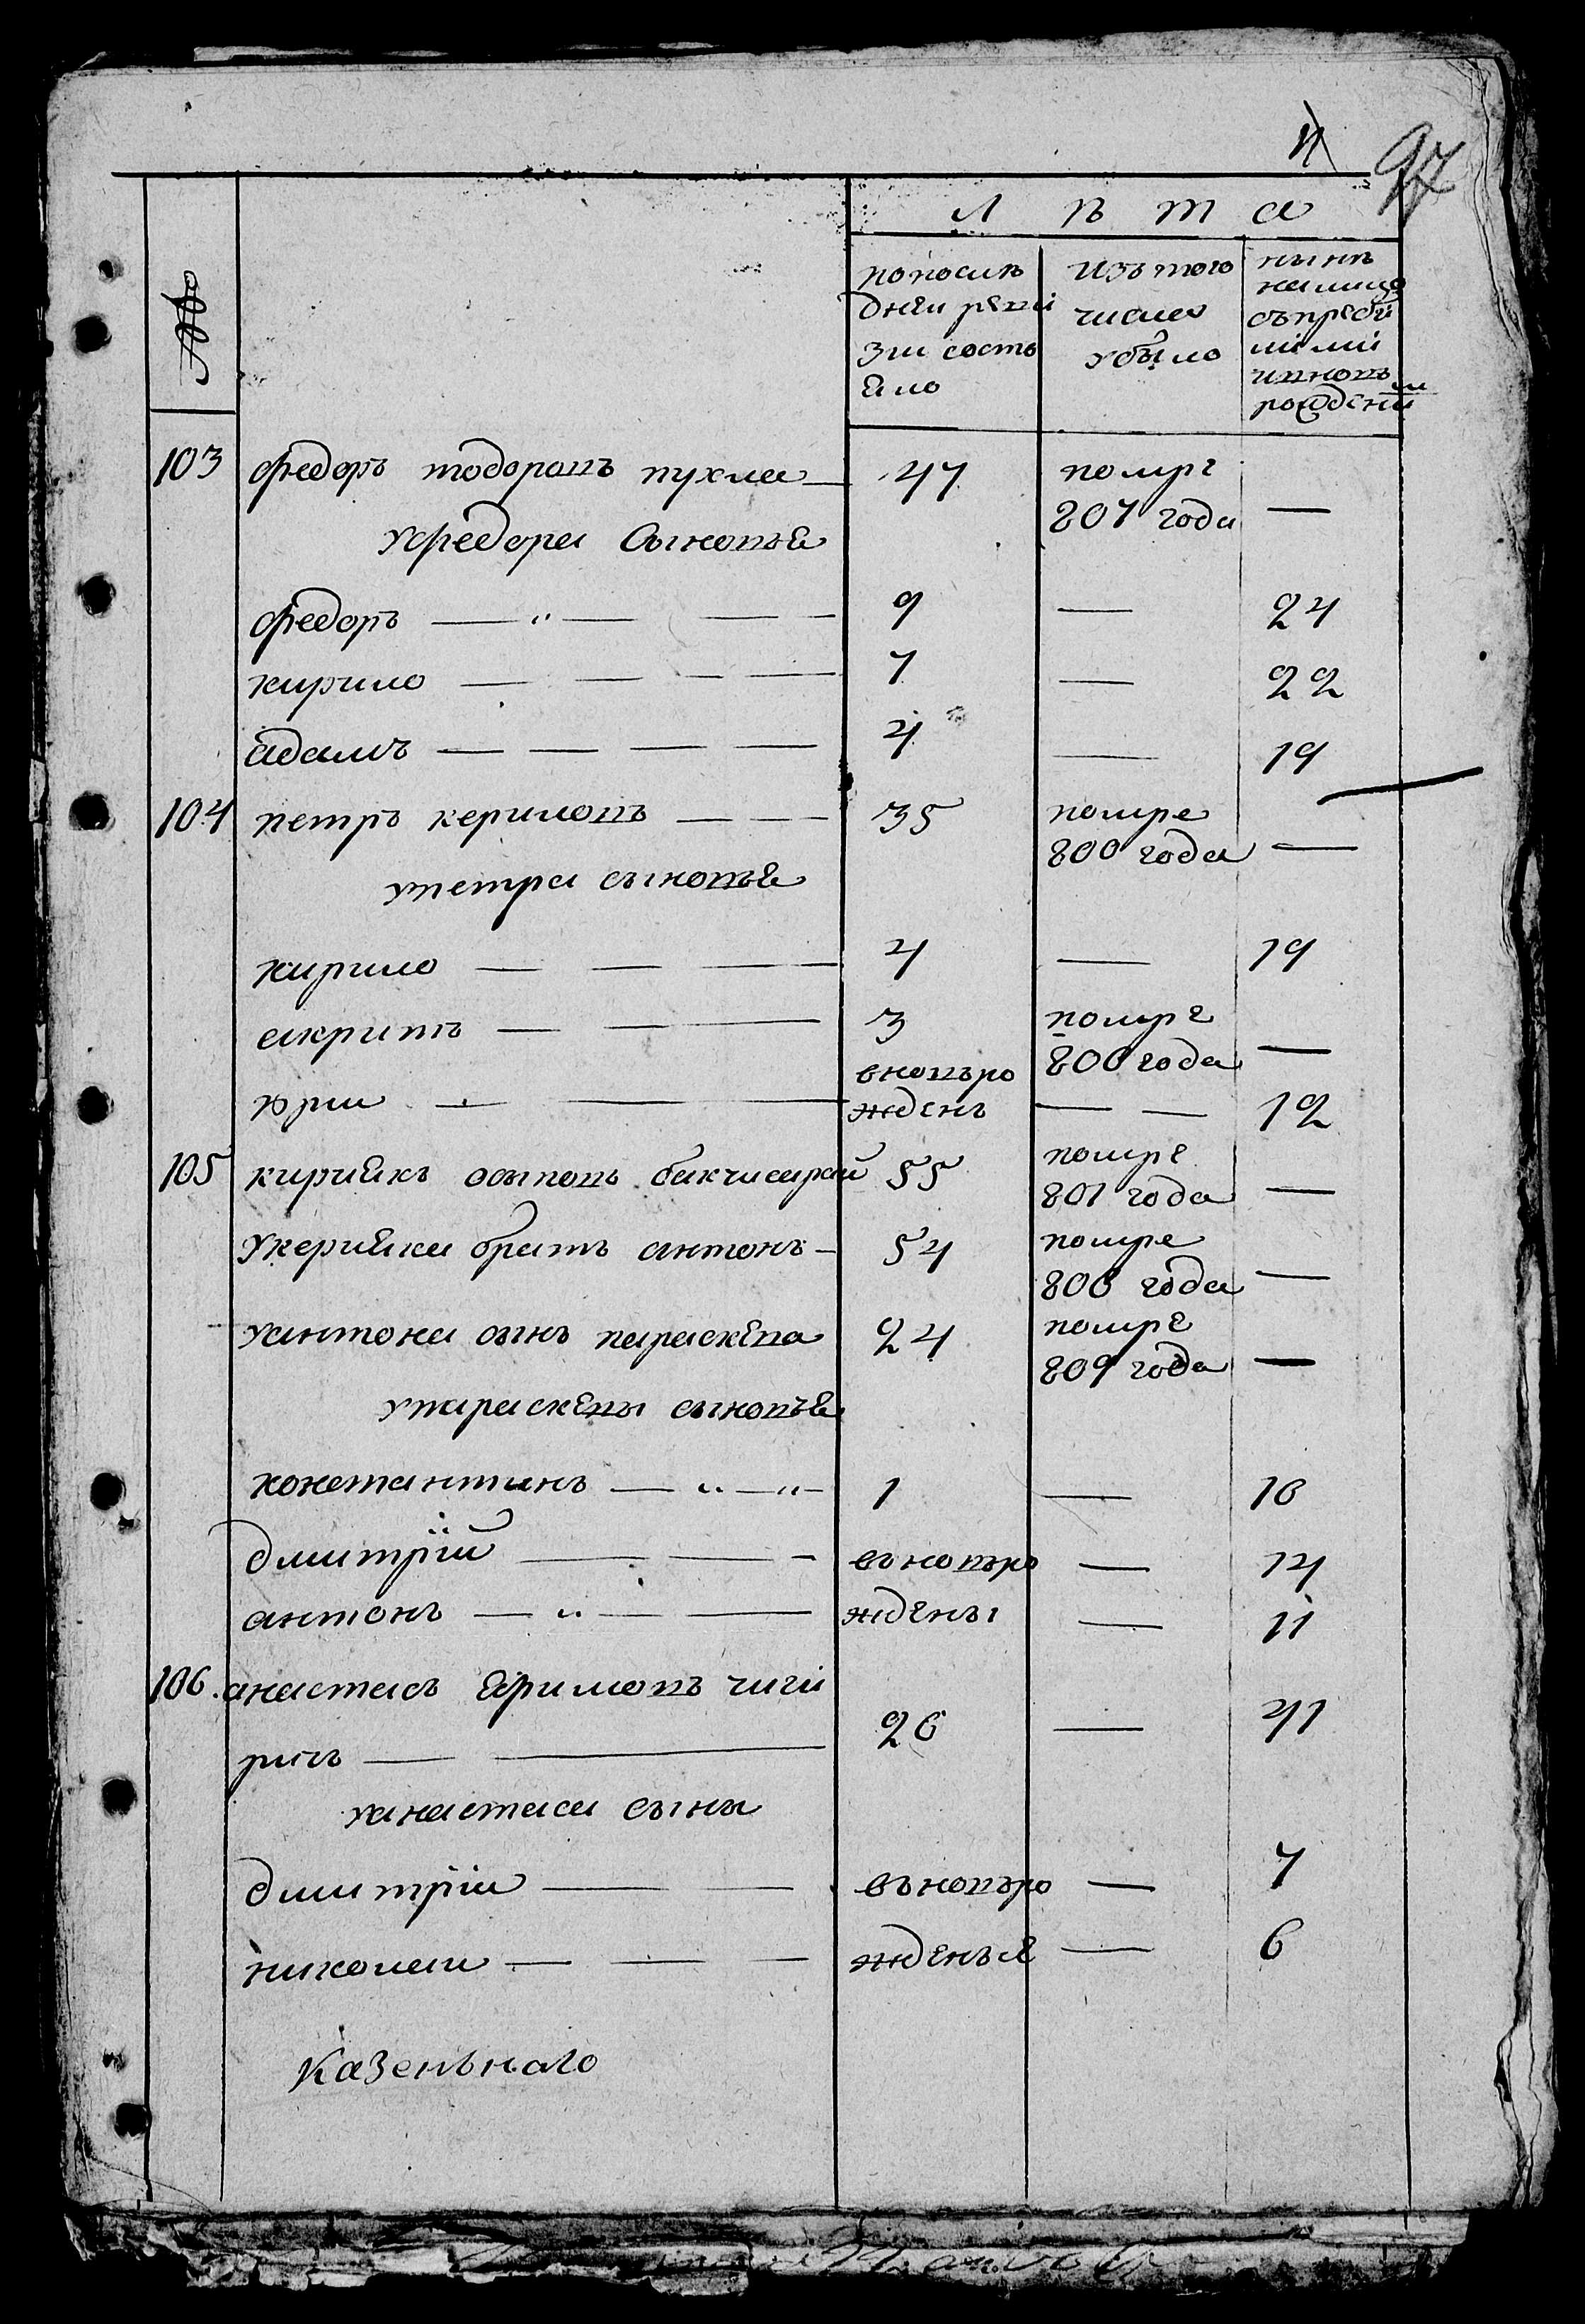 97
Л ѣ т а
№
попослѣ
дней реви
зии состо
яло
изътого
числа
убыло
нынѣ
налицо
съприбы
лыми
ивновь
рожденными
103 федоръ тодоровъ пухла 47 помре
807 года —
уфедора сыновья
федоръ — — — 9 — 24
кирило — — — — 7 — 22
адамъ — — — — 4 — 19
104 петръ кериловъ — — 35 помре
800 года —
упетра сыновья
кирило — — — 4 — 19
3 помре
806 года —
вновьро
юрии — — ждень — — 12
105 кириякъ бакчисарай 55 помре
801 года —
укерияка братъ антонъ — 54 помре
806 года —
уантона сынъ параскева 24 помре
809 года —
упараскевы сыновья
константинъ — — 1 — 16
дмитрїй — — — вьновьро — 14
антонъ — — — ждены — 11
106. анастасъ яримовъ чиги
ринъ — — 26 — 41
уанастаса сына
дмитріи — — вьновьро — 7
николаи — — — жденыя — 6
Казенънаго